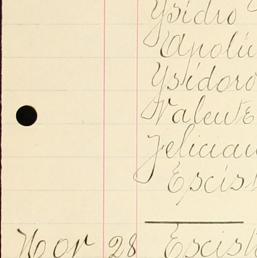 Ysidro
Apolin
Ysidoro
Valente
Felician
Escis
Nov 28 Escis